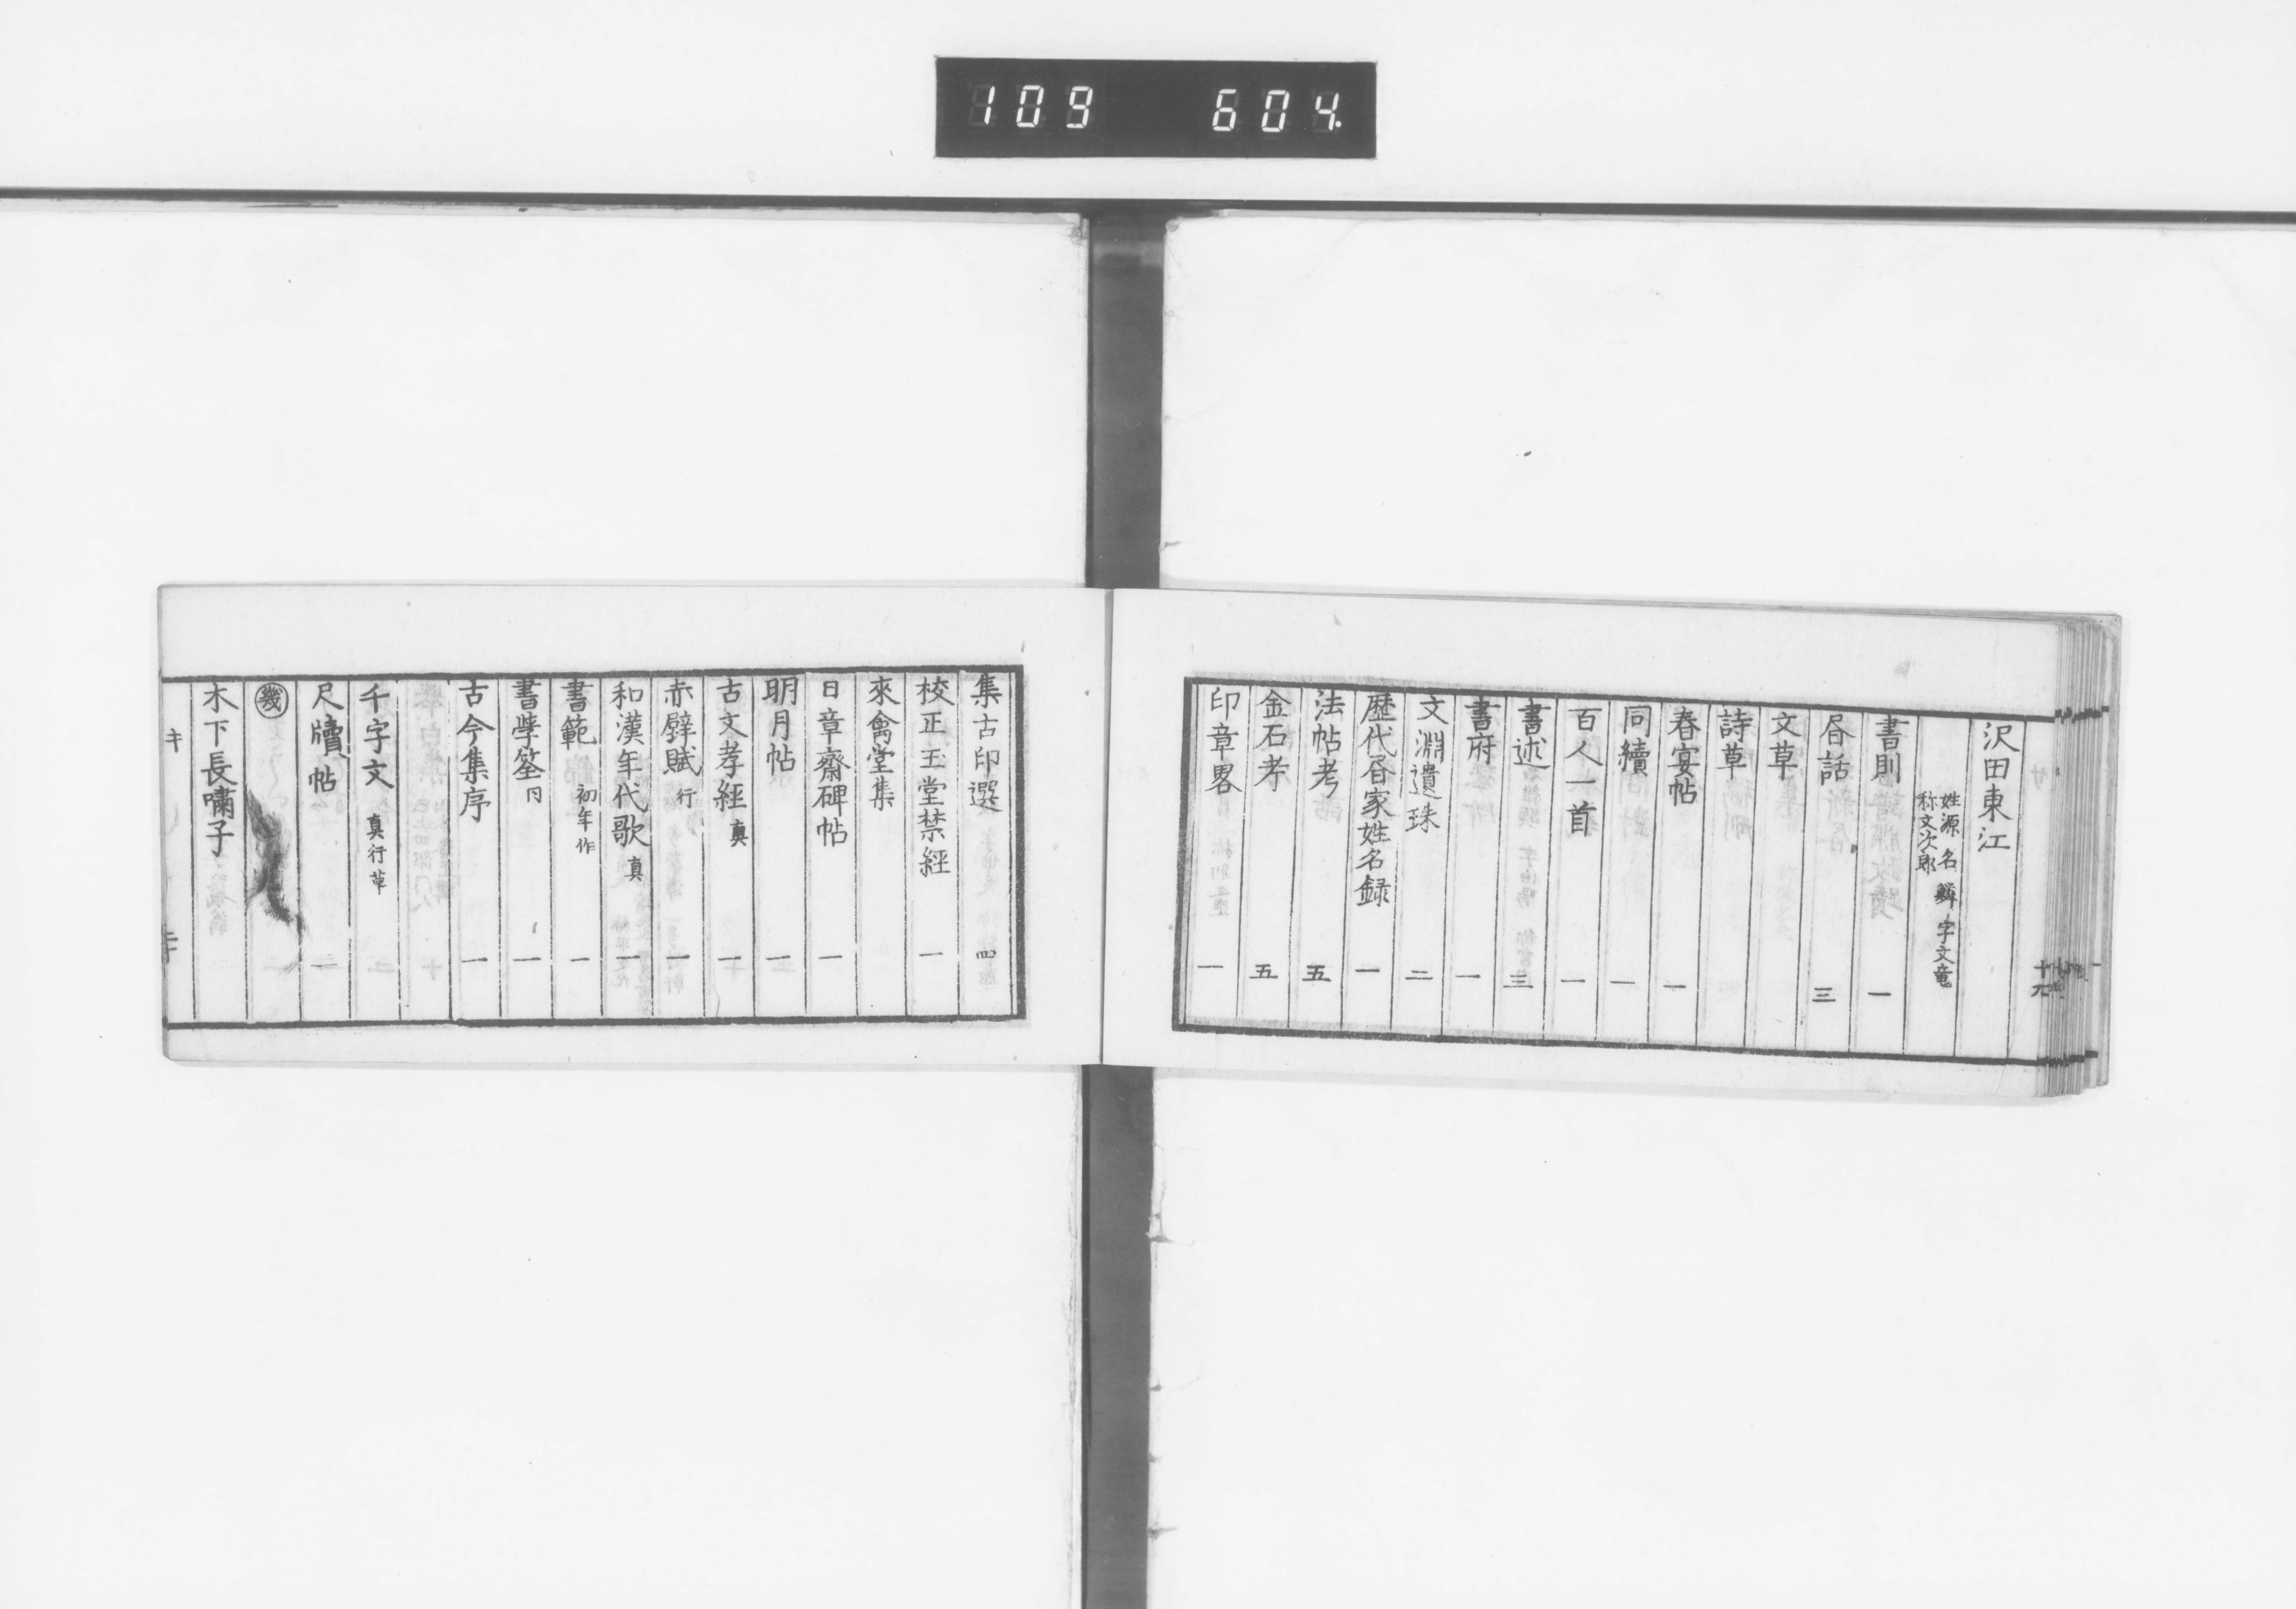 109 604
沢田東江
姓源 名鱗 字文竜
称文次郎
書則 一
昏話 三
文草
詩草
春宴帖 一
同續 一
百人一首 一
書述 三
書府 一
文淵遺珠 二
歴代昏家姓名録 一
法帖考 五
金石考 五
印章畧 一
集古印選 四
校正玉堂禁經 一
來禽堂集
日章齋碑帖 一
明月帖 一
古文孝經 真 一
赤壁賦 行 一
和漢年代歌 真 一
書範 初年作 一
書學筌 同 一
古今集序 一
千字文 真行草
尺牘帖 二
幾
木下長嘯子
キ